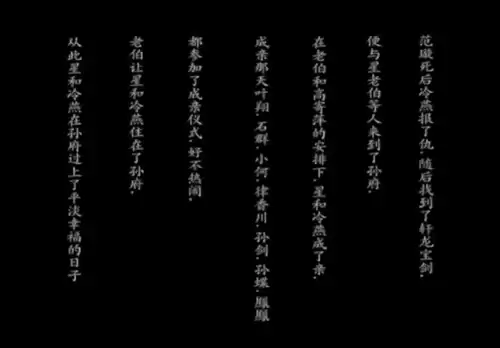 范璇死后冷燕报了仇.随后找到了轩龙宝剑.
便与星老伯等人来到了孙府.
在老伯和高寄萍的安排下.星和冷燕成了亲.
成亲那天叶翔.石群.小何.律香川.孙剑.孙蝶.鳳鳳
都参加了成亲仪式.好不热闹.
老伯让星和冷燕住在了孙府.
从此星和冷燕在孙府过上了平淡幸福的日子